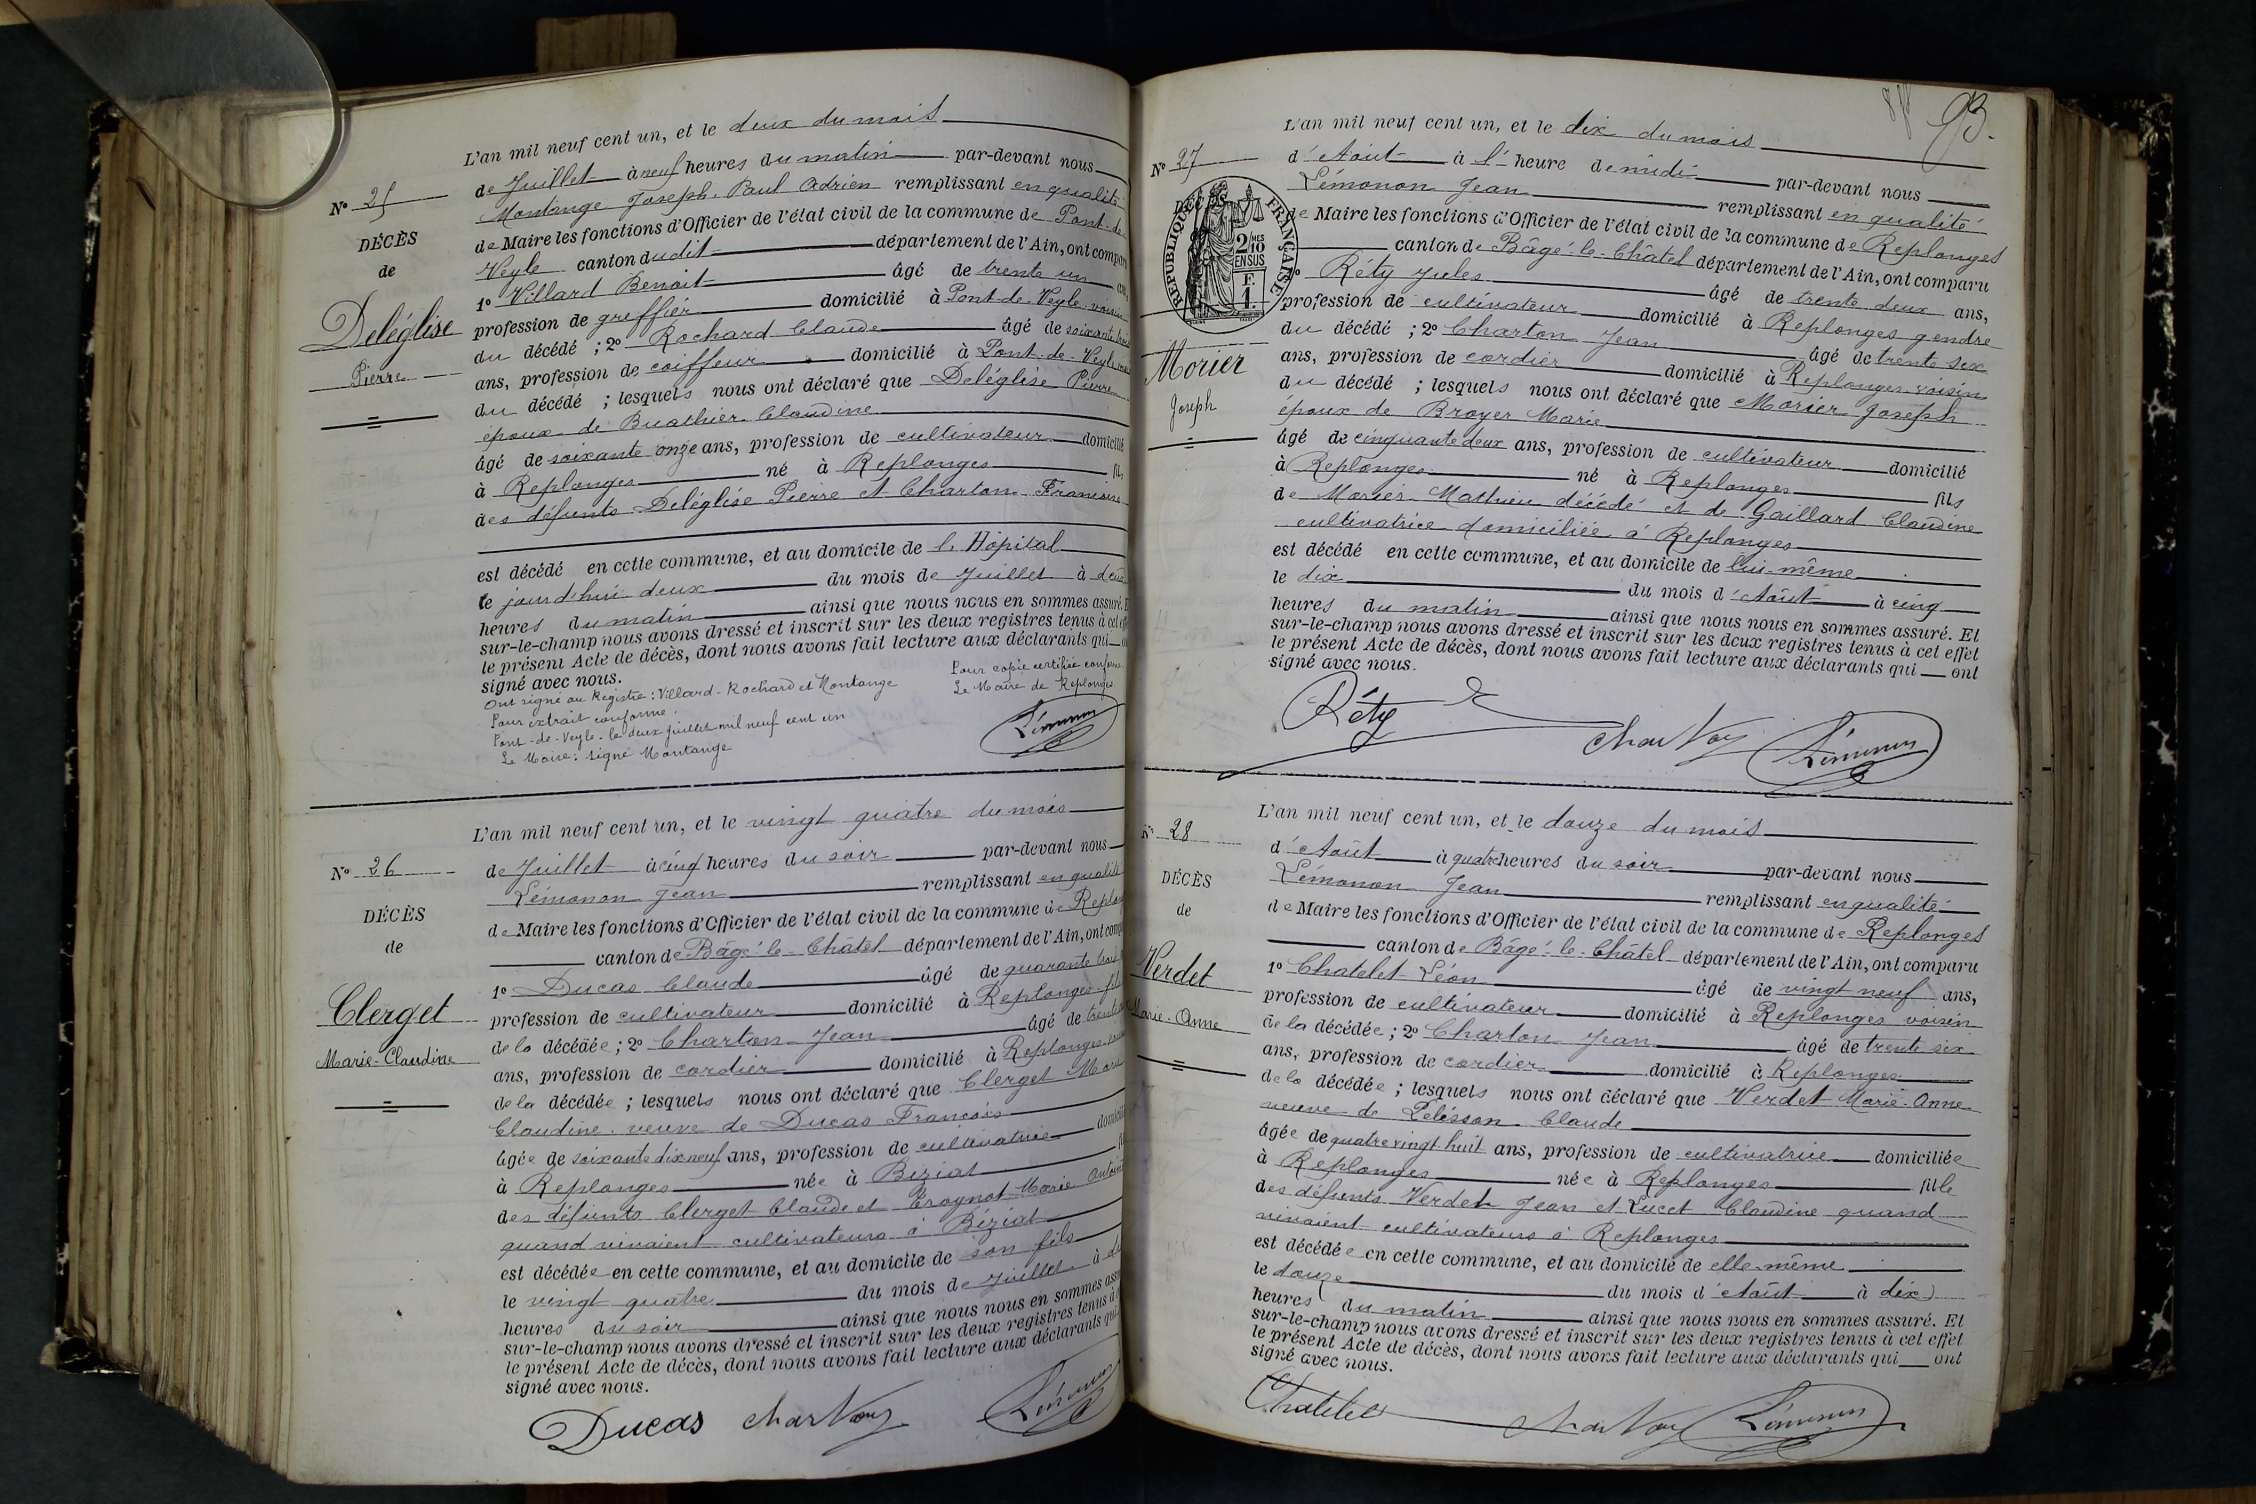 L'an mil neuf cent un, et le deux du mois
de Juillet à neuf heures du matin par-devant nous
Montange Joseph, Paul Adrien remplissant en qualité
de Maire les fonctions d'Officier de l'état civil de la commune de Pont-de-
Veyle canton dudit département de l'Ain, ont comparu
1º Villard Benoit âgé de trente un ans,
profession de greffier domicilié à Pont-de-Veyle voisin
du décédé ; 2º Rochard Claude âgé de soixante
ans, profession de coiffeur domicilié à Pont-de-Veyle
du décédé ; lesquels nous ont déclaré que Deléglise Pierre
époux de Buathier Claudine
âgé de soixante onze ans, profession de cultivateur domicilié
à Replonges né à Replonges fils
des défunts Deléglise Pierre et Charton Françoise
est décédé en cette commune, et au domicile de l'Hôpital
le jourd'hui deux du mois de Juillet à deux
heures du matin ainsi que nous nous en sommes assuré. Et
sur-le-champ nous avons dressé et inscrit sur les deux registres tenus à cet effet
le présent Acte de décès, dont nous avons fait lecture aux déclarants qui
signé avec nous.
Ont signé au Registre : Villard - Rochard et Montange
Pour extrait conforme.
Pont-de-Veyle, le deux juillet mil neuf cent un
Le Maire : signé Montange
Pour copie certifiée conforme
Le Maire de Replonges
Lémonon
Nº 25
DÉCÈS
de
Deléglise
Pierre
L'an mil neuf cent un, et le vingt quatre du mois
de Juillet à cinq heures du soir par-devant nous
Lémonon Jean remplissant en qualité
de Maire les fonctions d'Officier de l'état civil de la commune de Replonges
canton de Bâgé-le-Châtel département de l'Ain, ont comparu
1º Ducas Claude âgé de quarante trois
profession de cultivateur domicilié à Replonges fils
de la décédée ; 2º Charton Jean âgé de trente six
ans, profession de cordier domicilié à Replonges voisin
de la décédée ; lesquels nous ont déclaré que Clerget Marie
Claudine veuve de Ducas François
âgée de soixante dix neuf ans, profession de cultivatrice domiciliée
à Replonges née à Béziat
des défunts Clerget Claude et Marie Antoinette
quand vivaient cultivateurs à Béziat
est décédée en cette commune, et au domicile de son fils
le vingt quatre du mois de Juillet à
heures du soir ainsi que nous nous en sommes assuré
sur-le-champ nous avons dressé et inscrit sur les deux registres tenus à
le présent Acte de décès, dont nous avons fait lecture aux déclarants qui
signé avec nous.
Ducas Charton Lémonon
Nº 26
DÉCÈS
de
Clerget
Marie-Claudine
93.
L'an mil neuf cent un, et le dix du mois
d'Août à l'heure de midi par-devant nous
Lémonon Jean remplissant en qualité
de Maire les fonctions d'Officier de l'état civil de la commune de Replonges
canton de Bâgé-le-Châtel département de l'Ain, ont comparu
1º Réty Jules âgé de trente deux ans,
profession de cultivateur domicilié à Replonges gendre
du décédé ; 2º Charton Jean âgé de trente six
ans, profession de cordier domicilié à Replonges voisin
du décédé ; lesquels nous ont déclaré que Morier Joseph
époux de Broyer Marie
âgé de cinquante deux ans, profession de cultivateur domicilié
à Replonges né à Replonges fils
de Morier Mathieu décédé et de Gaillard Claudine
cultivatrice domiciliée à Replonges
est décédé en cette commune, et au domicile de lui-même
le dix du mois d'Août à cinq
heures du matin ainsi que nous nous en sommes assuré. Et
sur-le-champ nous avons dressé et inscrit sur les deux registres tenus à cet effet
le présent Acte de décès, dont nous avons fait lecture aux déclarants qui ont
signé avec nous.
Réty Charton Lémonon
Nº 27
DÉCÈS
RÉPUBLIQUE FRANÇAISE
2/10 MES
EN SUS
F.
1.
Morier
Joseph
L'an mil neuf cent un, et le douze du mois
d'Août à quatre heures du soir par-devant nous
Lémonon Jean remplissant en qualité
de Maire les fonctions d'Officier de l'état civil de la commune de Replonges
canton de Bâgé-le-Châtel département de l'Ain, ont comparu
1º Chatelet Léon âgé de vingt neuf ans,
profession de cultivateur domicilié à Replonges voisin
de la décédée ; 2º Charton Jean âgé de trente six
ans, profession de cordier domicilié à Replonges
de la décédée ; lesquels nous ont déclaré que Verdet Marie-Anne
veuve de Pelisson Claude
âgée de quatre vingt huit ans, profession de cultivatrice domiciliée
à Replonges née à Replonges fille
des défunts Verdet Jean et Lucet Claudine quand
vivaient cultivateurs à Replonges
est décédée en cette commune, et au domicile de elle-même
le douze du mois d'Août à dix
heures du matin ainsi que nous nous en sommes assuré. Et
sur-le-champ nous avons dressé et inscrit sur les deux registres tenus à cet effet
le présent Acte de décès, dont nous avons fait lecture aux déclarants qui ont
signé avec nous.
Chatelet Charton Lémonon
Nº 28
DÉCÈS
de
Verdet
Marie-Anne